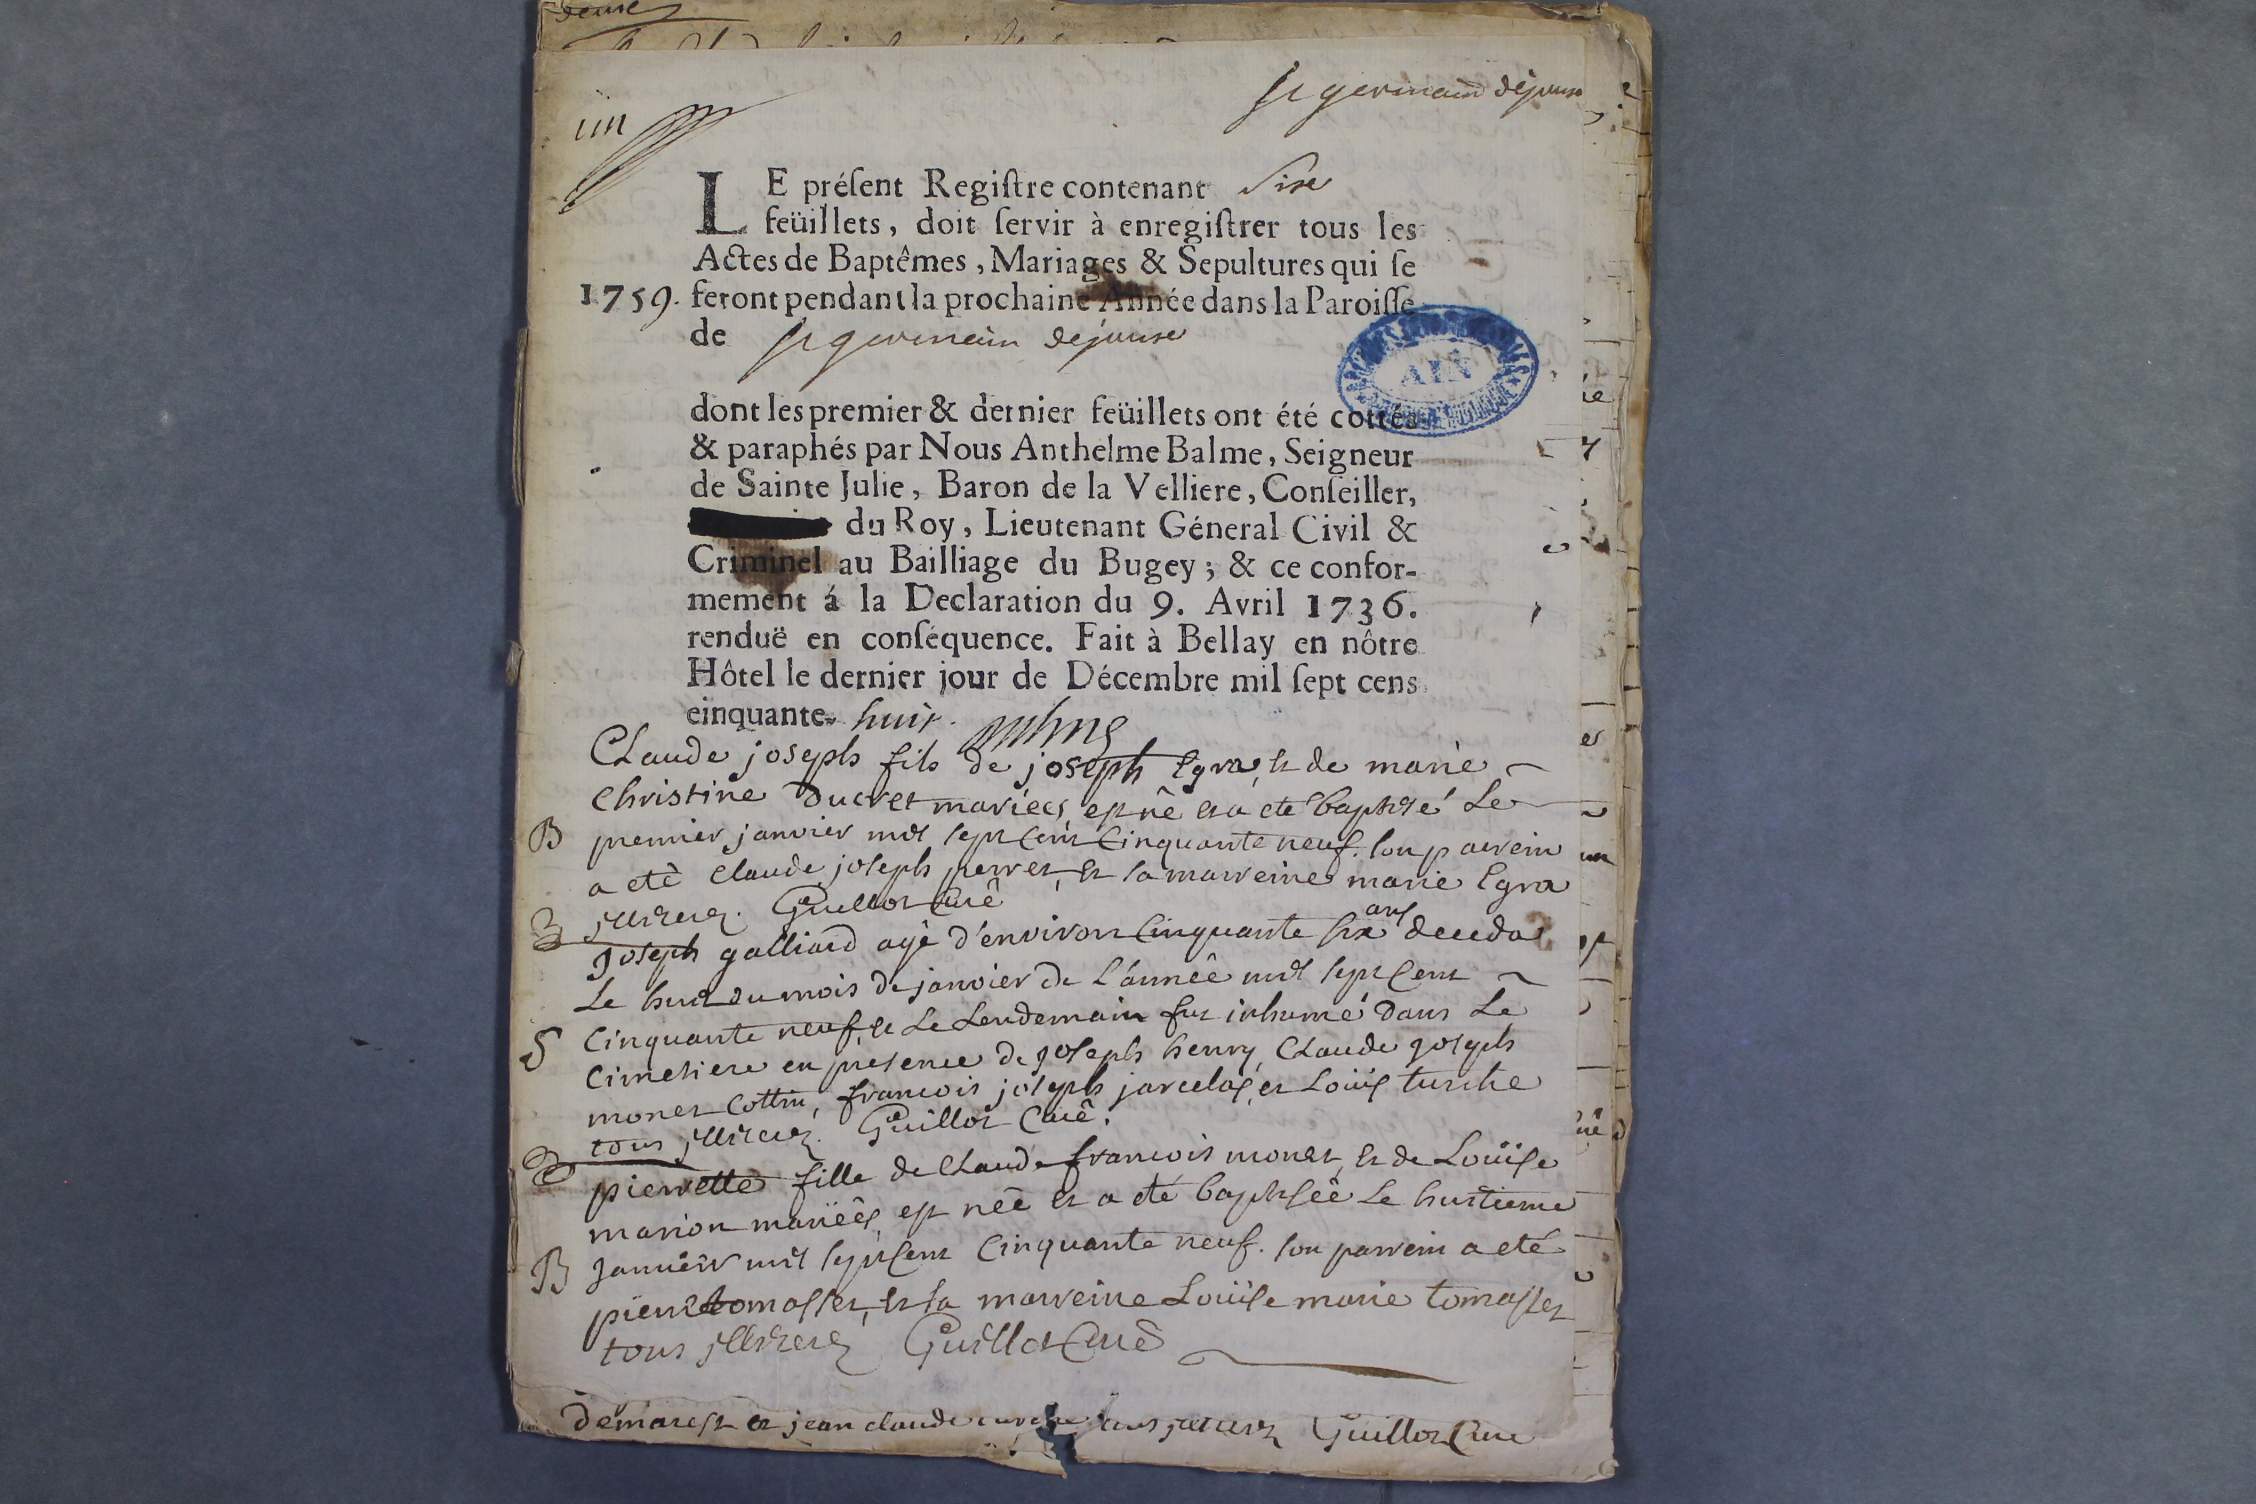 un
St germain dejoux
LE préſent Regiſtre contenant Sixe
feüillets, doit ſervir à enregiſtrer tous les
Actes de Baptêmes, Mariages & Sepultures qui ſe
1759. feront pendant la prochaine Année dans la Paroiſſe
de St germain dejoux
AIN
dont les premier & dernier feüillets ont été cottés
& paraphés par Nous Anthelme Balme, Seigneur
de Sainte Julie, Baron de la Velliere, Conſeiller,
du Roy, Lieutenant Géneral Civil &
Criminel au Bailliage du Bugey; & ce confor-
mement á la Declaration du 9. Avril 1736.
renduë en conſéquence. Fait à Bellay en nôtre
Hôtel le dernier jour de Décembre mil ſept cens
cinquante- huit.
Claude joseph fils de joseph Egra, et de marie
christine Ducret mariées, est né et a eté baptisé Le
B premier janvier mil sept Cent Cinquante neuf. son parrein
a eté claude joseph perret, et sa marreine marie Egra
illiterez. Guillot Curé
Joseph galliard agé d'environ Cinquante six ans deceda
Le huit du mois de janvier de L'année mil sept Cent
S Cinquante neuf, et Le Lendemain fut inhumé Dans Le
Cimetiere en presence de joseph henry, Claude joseph
monet Cottin, francois joseph jarcelas, et Loüis turche
tous illiterez. Guillot Curé.
pierrette fille de Claude francois monet, et de Loüise
marion mariéés, est néé et a eté baptiséé Le huitieme
B Janvier mil sept Cent Cinquante neuf. son parrein a eté
pierre tomasset, et sa marreine Loüise marie tomasset
tous illiterez Guillot Curé
Demarest et jean claude tous illiterez Guillot Curé